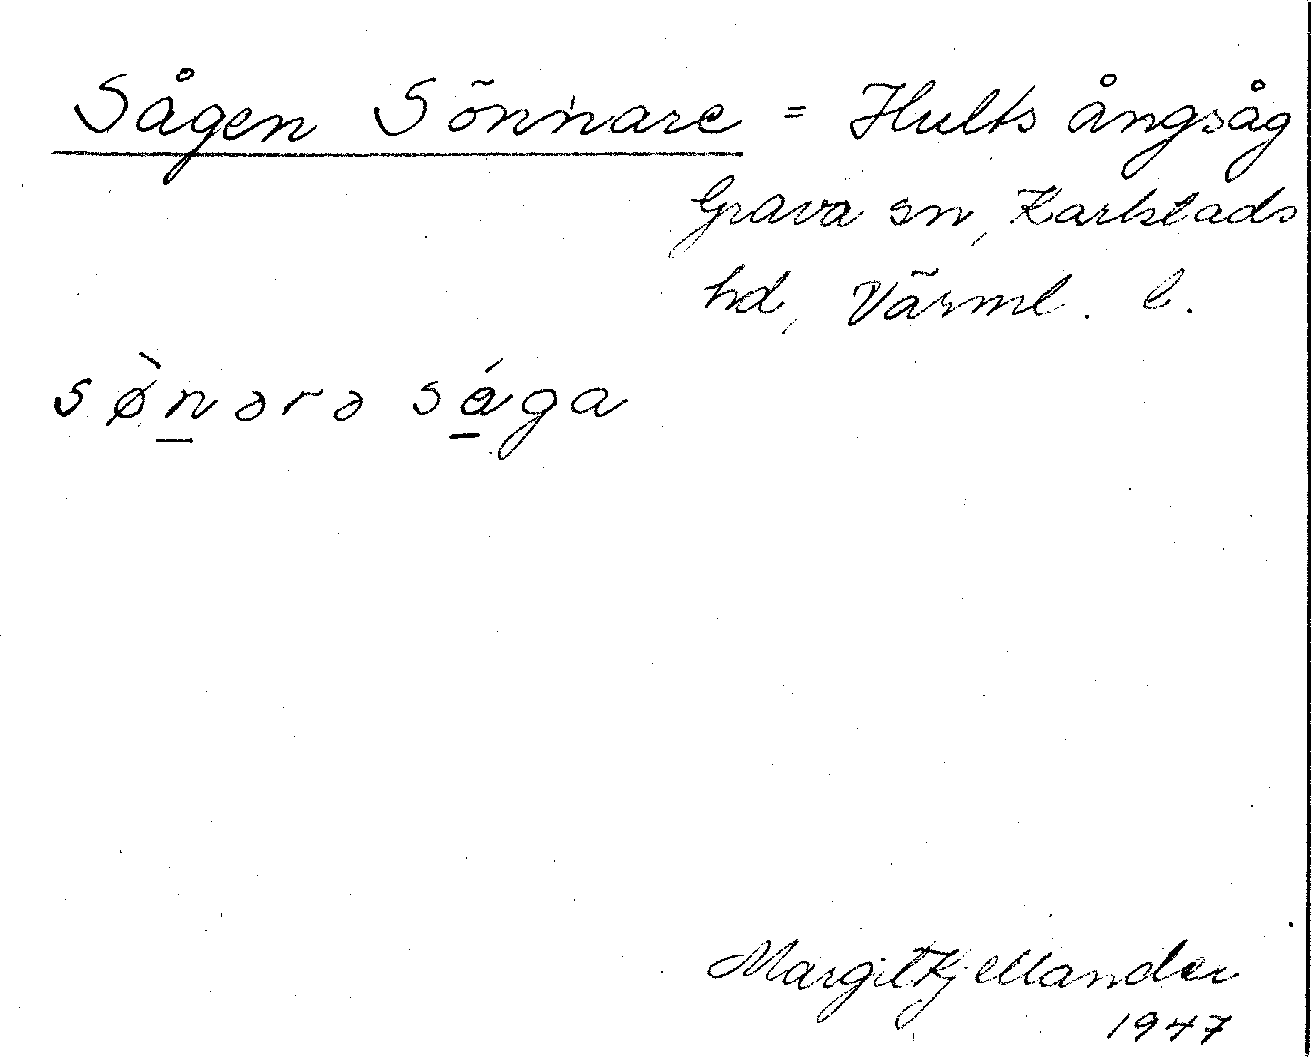 Sågen Sönnare = Hults ångsåg
Grava sn, Karlstads
hd, Värml. l.
sø̀n̲ərə sá̲ga
Margit Kjellander
1947